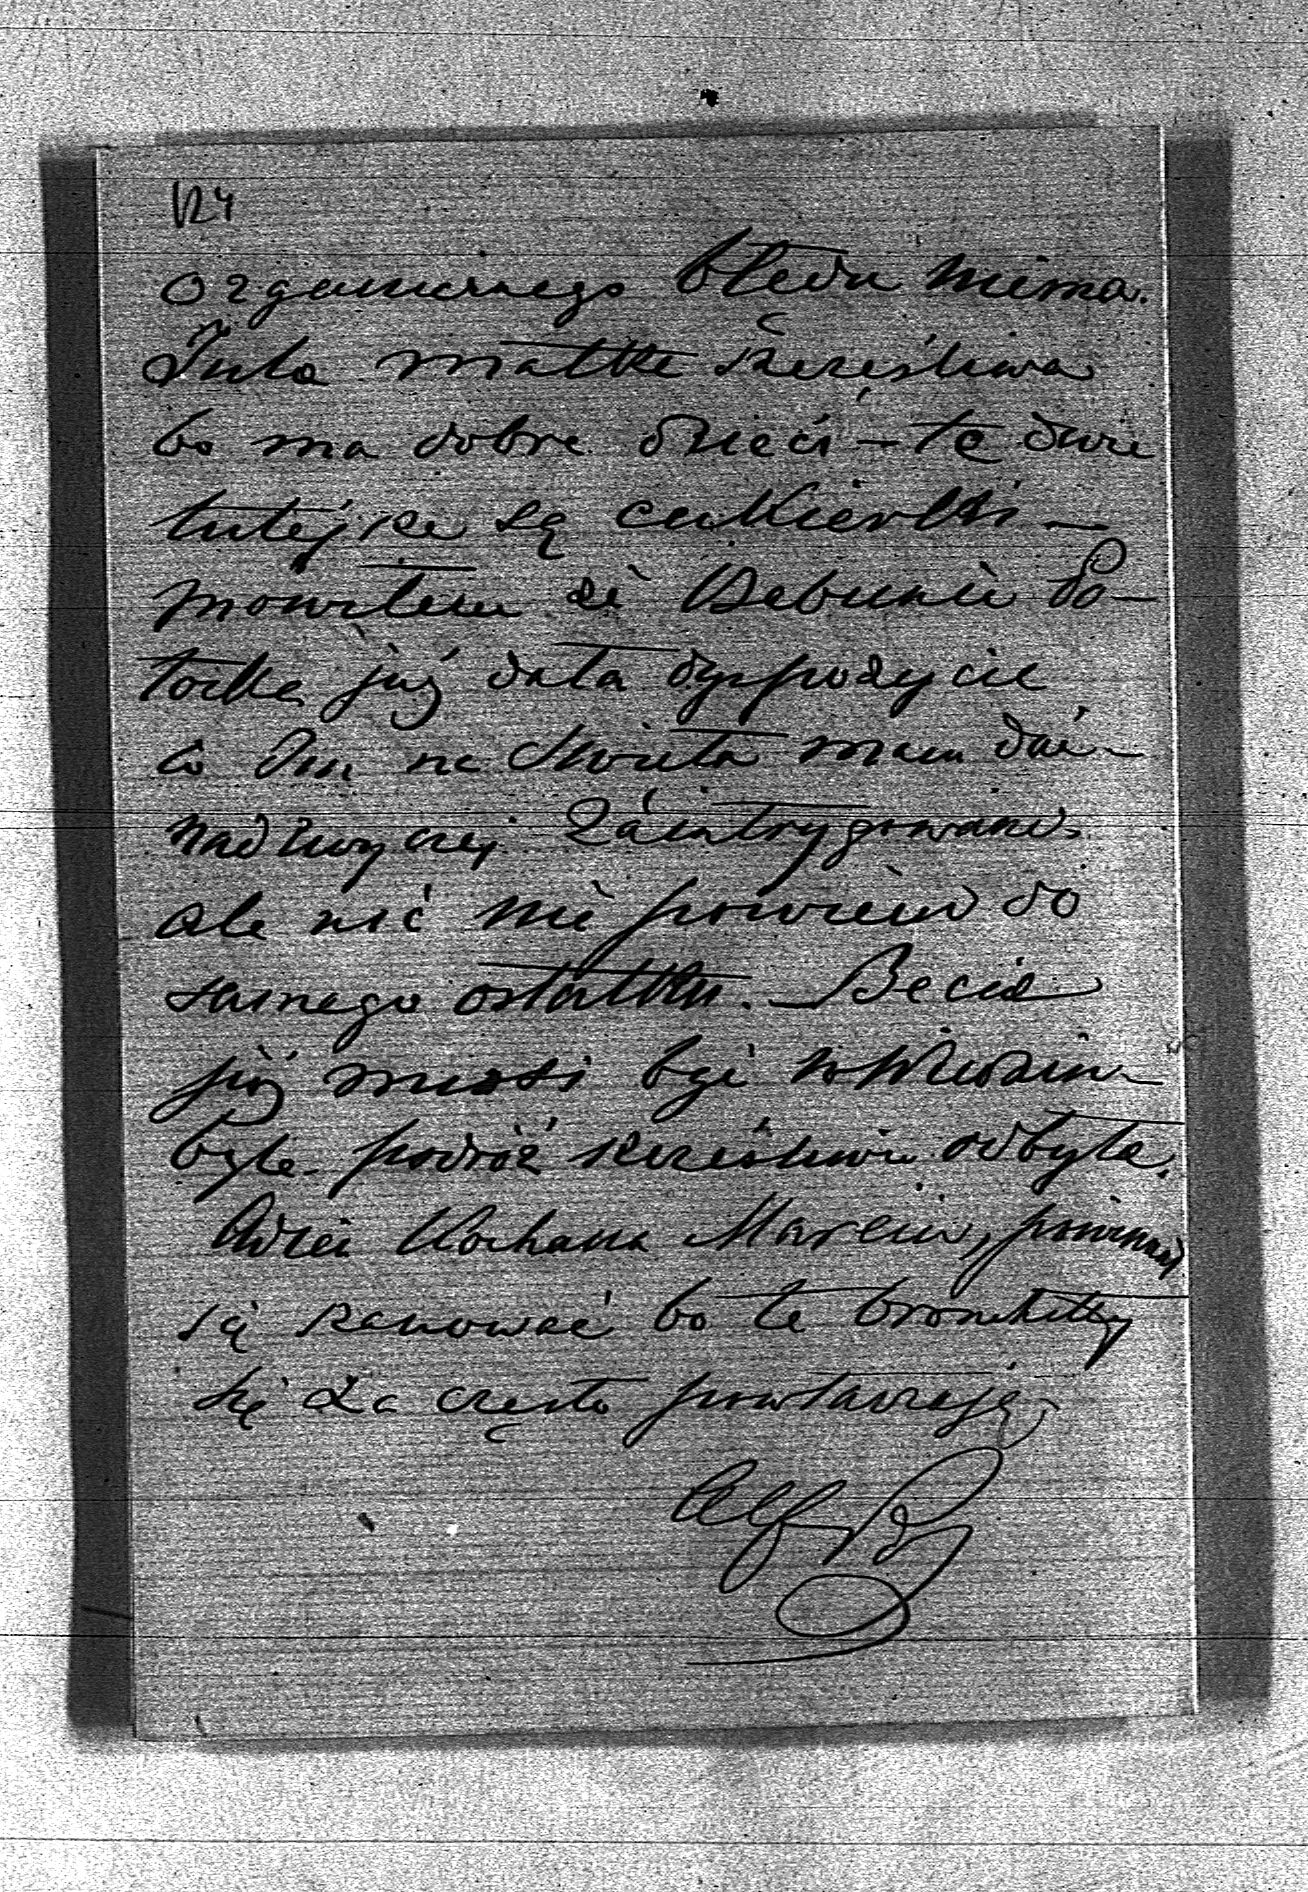 124
organicznego błędu niema.
Jula matka szczęśliwa
bo ma dobre dzieci – te dwie
tutejsze są cukierki –
mówiłem że Bebunie Po-
tocka już dała dyspozycie
co Im na Święta mam dać –
nadzwyczej zaintrygowane
ale nic nie powiem do
samego ostatku. – Becia
już musi być w
była podróż szczęśliwie odbyła.
Adzei kochana Marcin, powinnaś
się szanować bo te bronchitty
się za często powtarzają
Alf